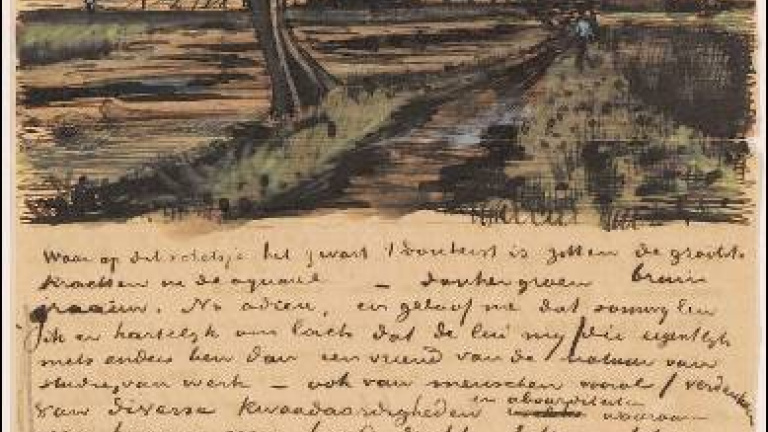 Waar op dit schetsje het zwart 't donkerst is zitten de grootste
krachten in de aquarel — donkergroen bruin
graauw. Nu adieu, en geloof me dat soms
ik er hartelijk om lach dat de lui my / die eigentlyk
niets anders ben dan een vriend van de natuur van
studie, van werk — ook van menschen vooral / verdenken
van diverse kwaadaardigheden en absurditeiten waaraan